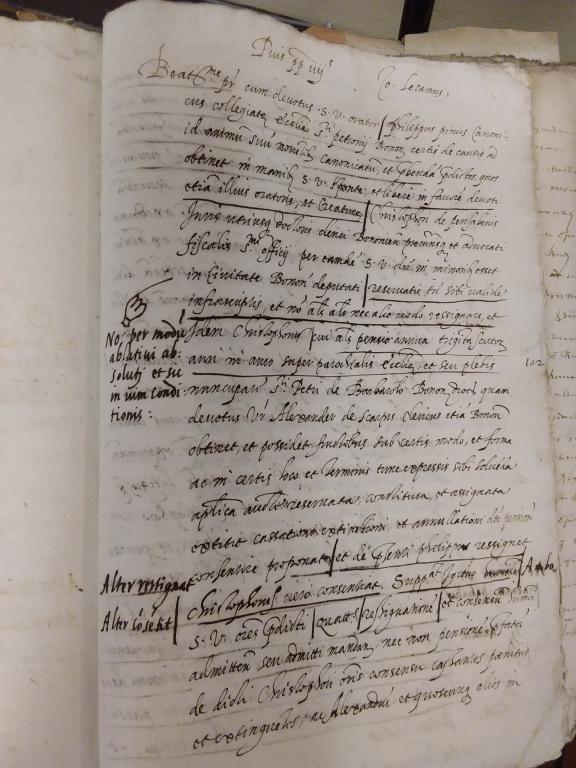 Pius pp iiijs
Jo. Lecanus,
Beatme pr cum devotus .S. V. orator Philippus pinus Canoni-
cus collegiate ecclie Sti petronij Bonon certis de causis ad
id animum suu moventib canonicatum et prbenda prdictos quos
obtinet in manib S. V. sponte, et libere in favore devoti
etia illius oratoris, et Creature Christophori de pensabinis
Juris utriusq doctoris clerici Bononien procuris et advocati
fiscalis Sti officij per eamde S. V. du in minorib esset
in Civitate Bonon deputati reservatis tn sibi valide
infrascriptis, et no als als nec alio modo resignare, et
Idem Christophorus cui als pensio annua triginta scutor
auri in auro super parochialis ecclie, et seu plebis
nuncupate Sti Petri de Barbarolo Bonon dioc quam
devotus Vr Alexander de Scarpis Clericus etia Bonon
obtinet, et possidet fructibus sub certis modo, et forma
ac in certis loco et terminis tunc expressis sibi solvenda
aplica auctte reservata, constituta, et assignata
extitit cassationi extinctioni, et annullationi dte pension
consentire proponat et de prsenti philippus resignet
Christophorus vero consentiat. Suppat igitur humiliter Ambo
S. V. ores prdicti quatts resignatione et consensu hmoi
admittere seu admitti mandare, nec non pensione prfata
de dicti Christophori oris consensu cassantes penitus
et extinguetes, ac Alexandru, et quoscunq alios in
No: per modu
ablativi ab-
soluti et su
m vim condi
tionis:
Alter resignat
Alter cosetit
102